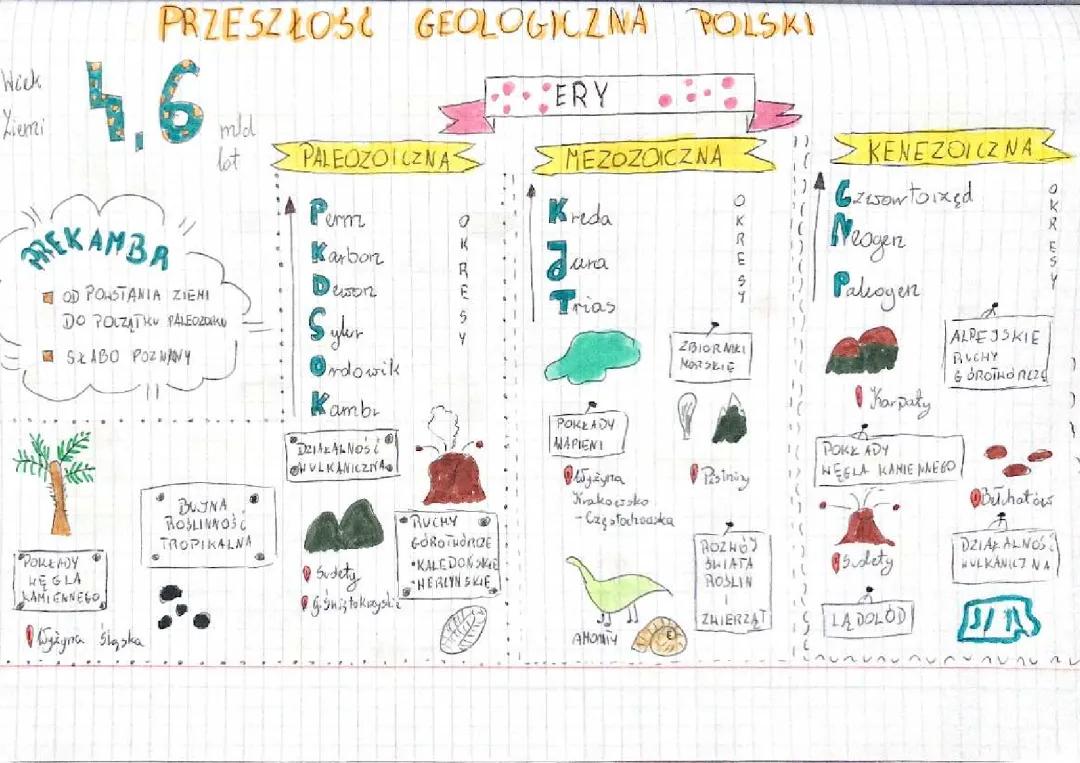 PRZESZŁOŚĆ GEOLOGICZNA POLSKI
Wiek
Ziemi
4,6
mld
lat
ERY
PREKAMBR
OD POWSTANIA ZIEMI
DO POCZĄTKU PALEOZOIKU
SŁABO POZNANY
PALEOZOICZNA
Perm
Karbon
Dewon
Sylur
Ordowik
Kambr
OKRESY
POKŁADY
WĘGLA
KAMIENNEGO
Wyżyna Śląska
BUJNA
ROŚLINNOŚĆ
TROPIKALNA
DZIAŁALNOŚĆ
WULKANICZNA
Sudety
G. Świętokrzyskie
RUCHY
GÓROTWÓRCZE
• KALEDOŃSKIE
• HERCYŃSKIE
MEZOZOICZNA
Kreda
Jura
Trias
OKRESY
ZBIORNIKI
MORSKIE
POKŁADY
WAPIENI
Wyżyna
Krakowsko
- Częstochowska
Pieniny
AMONITY
ROZWÓJ
ŚWIATA
ROŚLIN
I
ZWIERZĄT
KENEZOICZNA
Czwartorzęd
Neogen
Paleogen
OKRESY
ALPEJSKIE
RUCHY
GÓROTWÓRCZE
Karpaty
POKŁADY
WĘGLA KAMIENNEGO
Bełchatów
Sudety
DZIAŁALNOŚĆ
WULKANICZNA
LĄDOLÓD